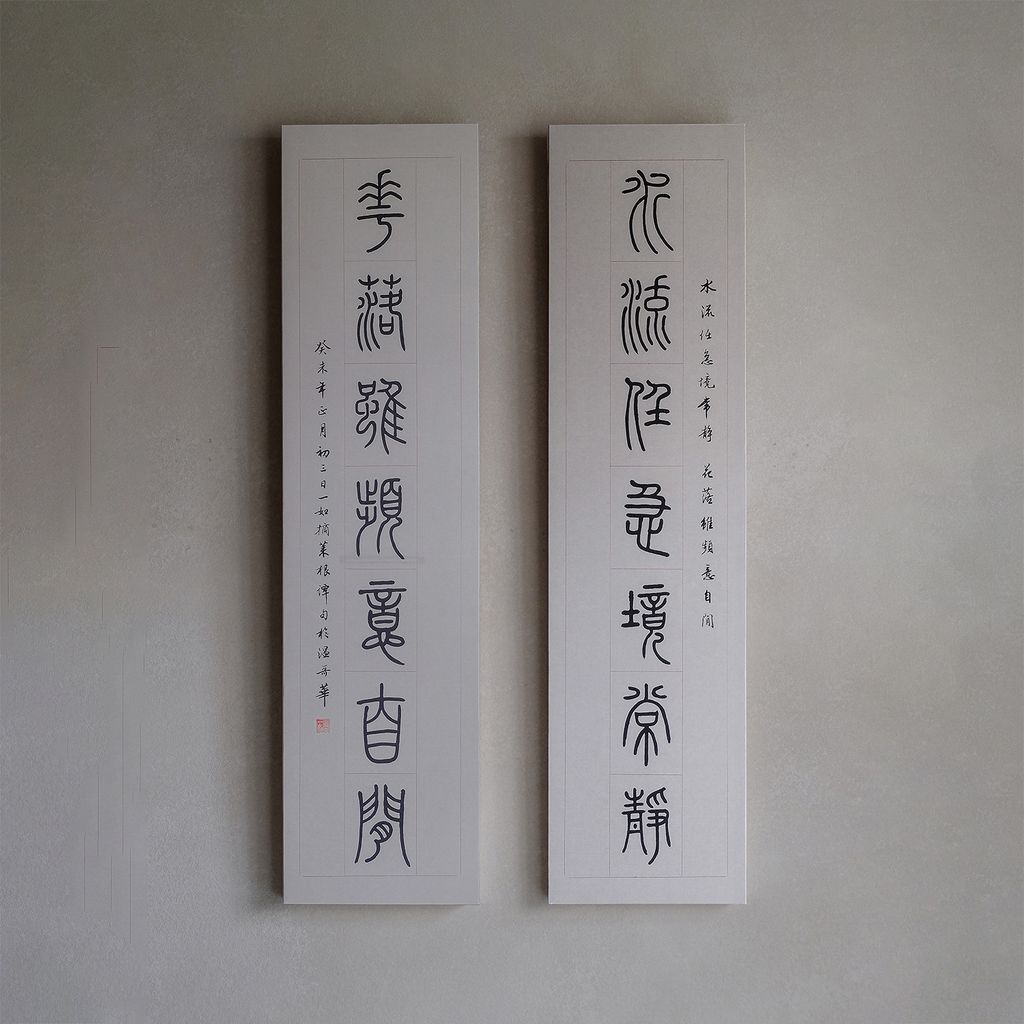 水流任急境常靜
水流任急境常靜 花落雖頻意自閒
華落雖頻意自閒
癸未年正月初三日一如摘菜根譚句於溫哥華